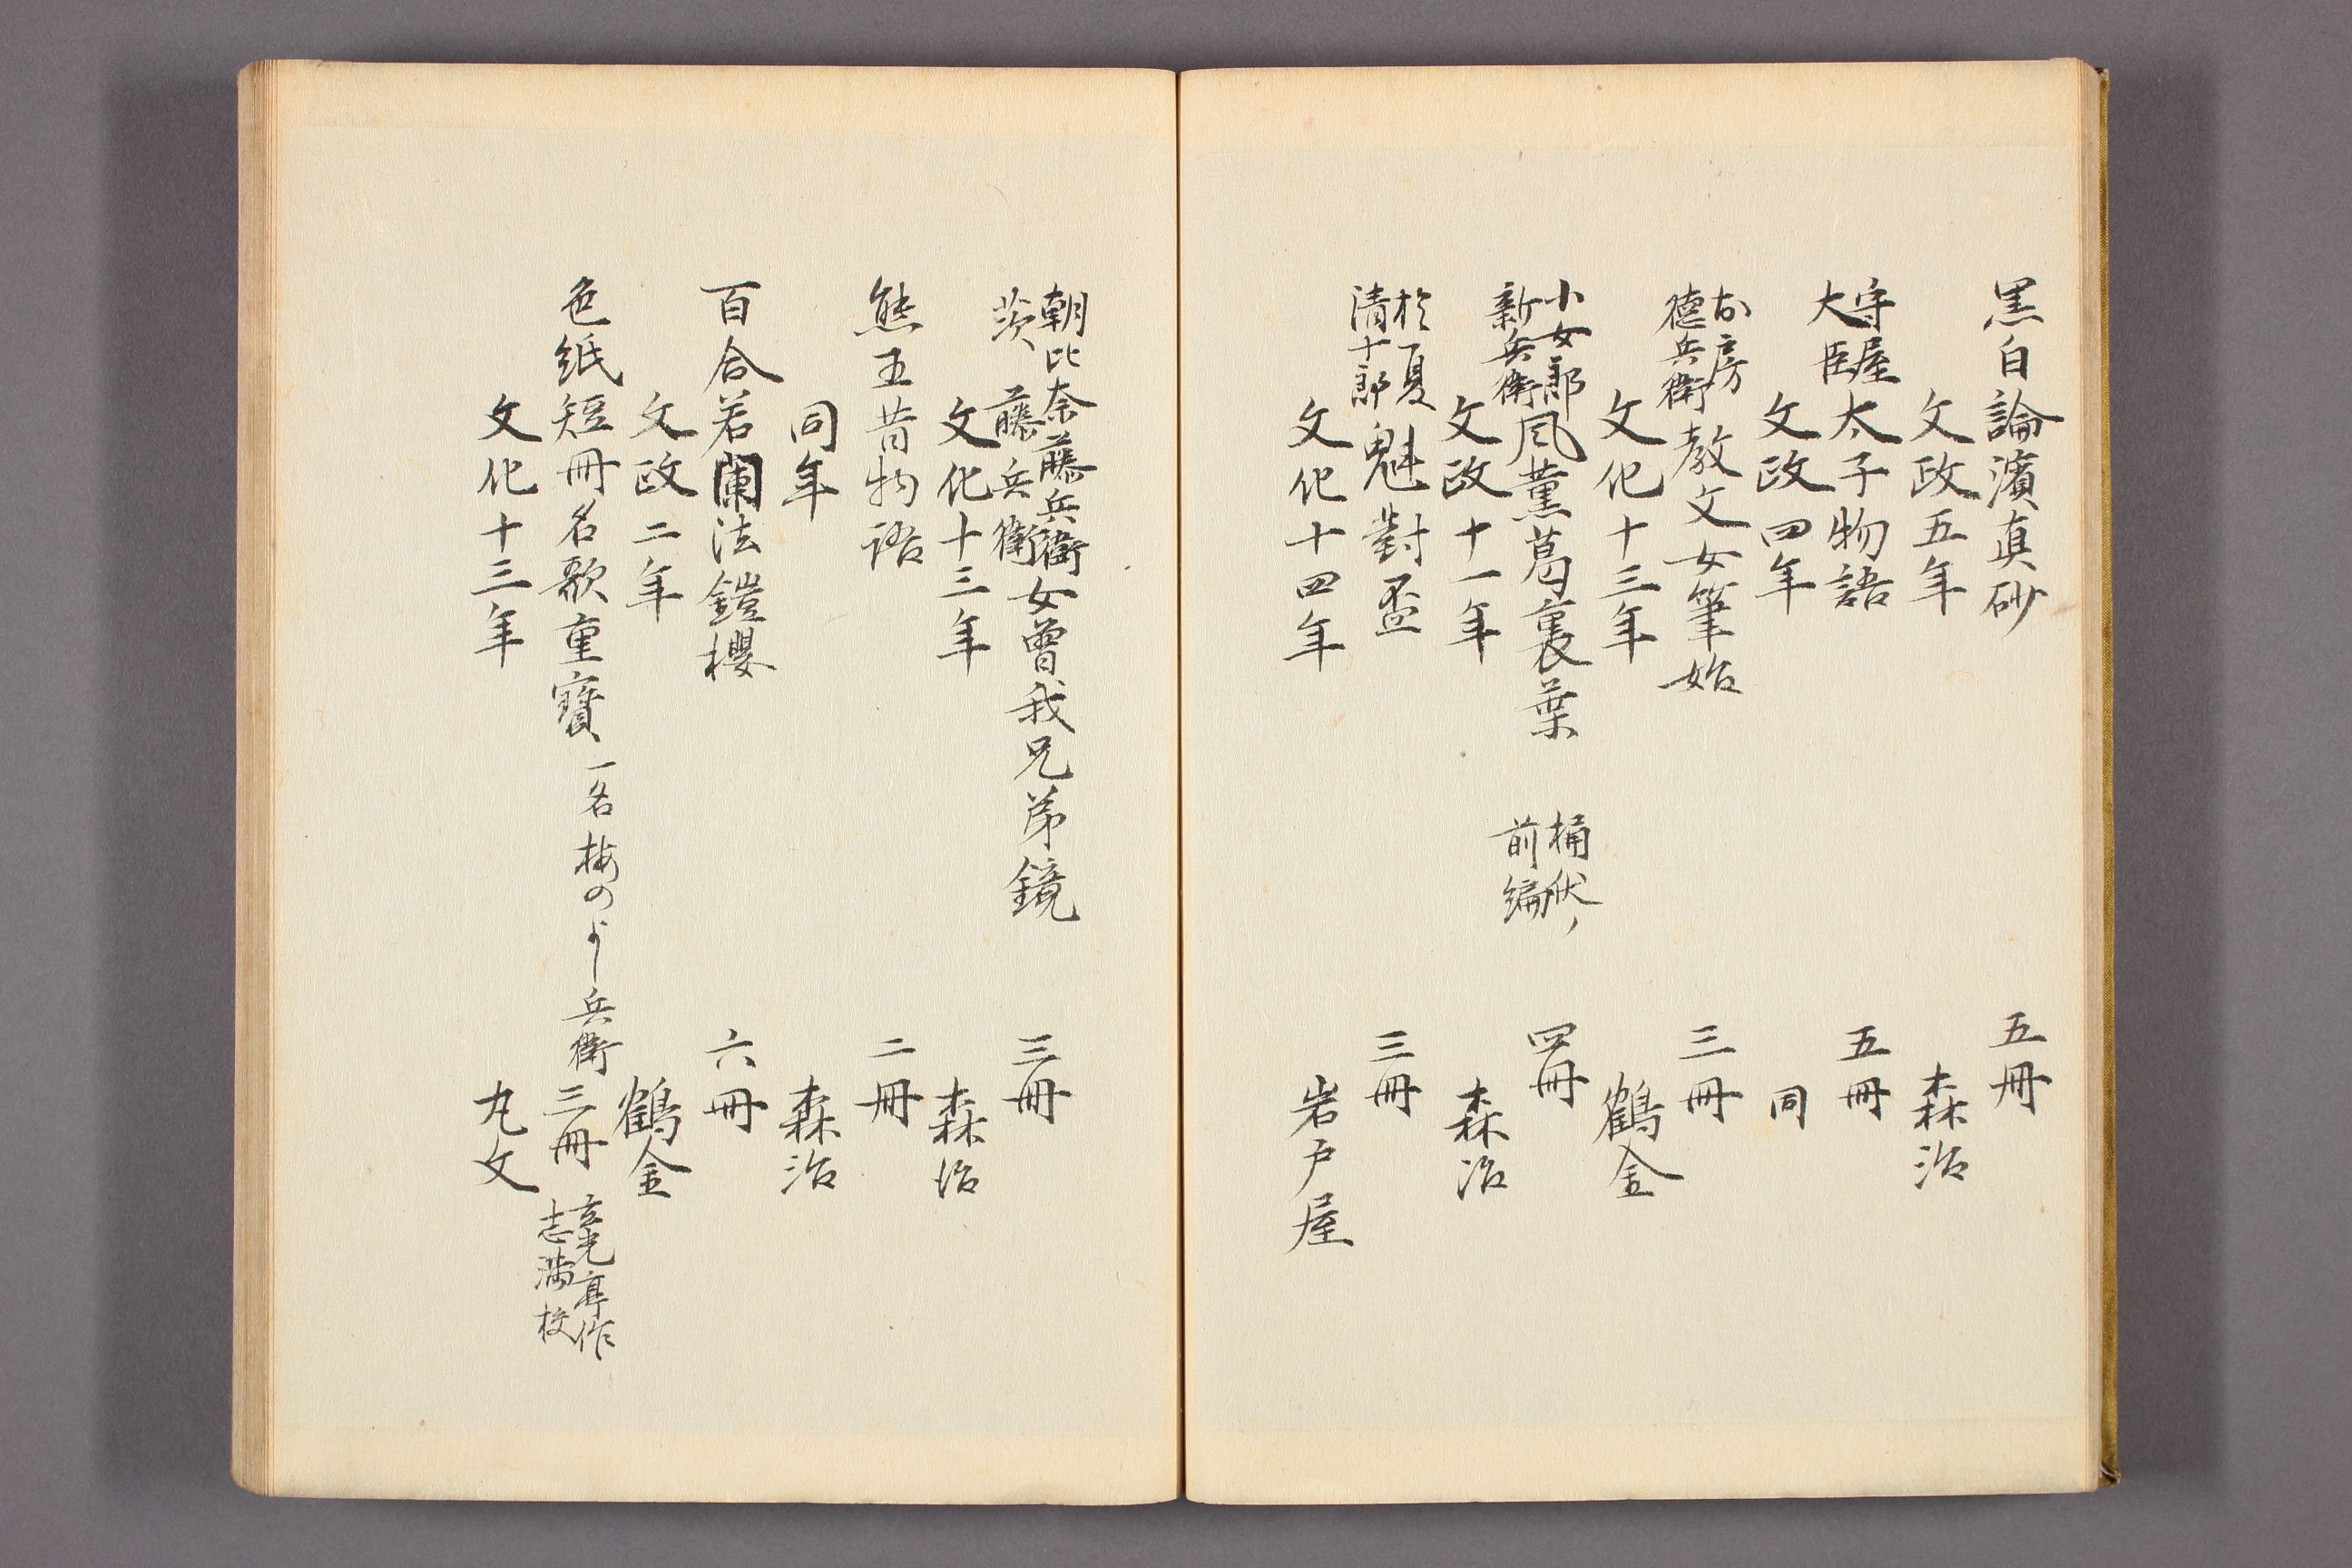 黒白論濱真砂　五冊
文政五年　森治
守屋大臣太子物語　五冊
文政四年　同
お房徳兵衛教文女筆始　三冊
文化十三年　鶴金
小女郎新兵衛風薫葛裏葉　桶伏ノ前編　四冊
文政十一年　森治
於夏清十郎魁對盃　三冊
文化十四年　岩戸屋
朝比奈藤兵衛茨藤兵衛女曽我兄弟鏡　三冊
文化十三年　森治
熊王昔物語　二冊
同年　森治
百合若蘭法鎧櫻　六冊
文政二年　鶴金
色紙短冊名歌重寶　一名梅のよし兵衛　三冊　玄光亭作志満校
文化十三年　丸文